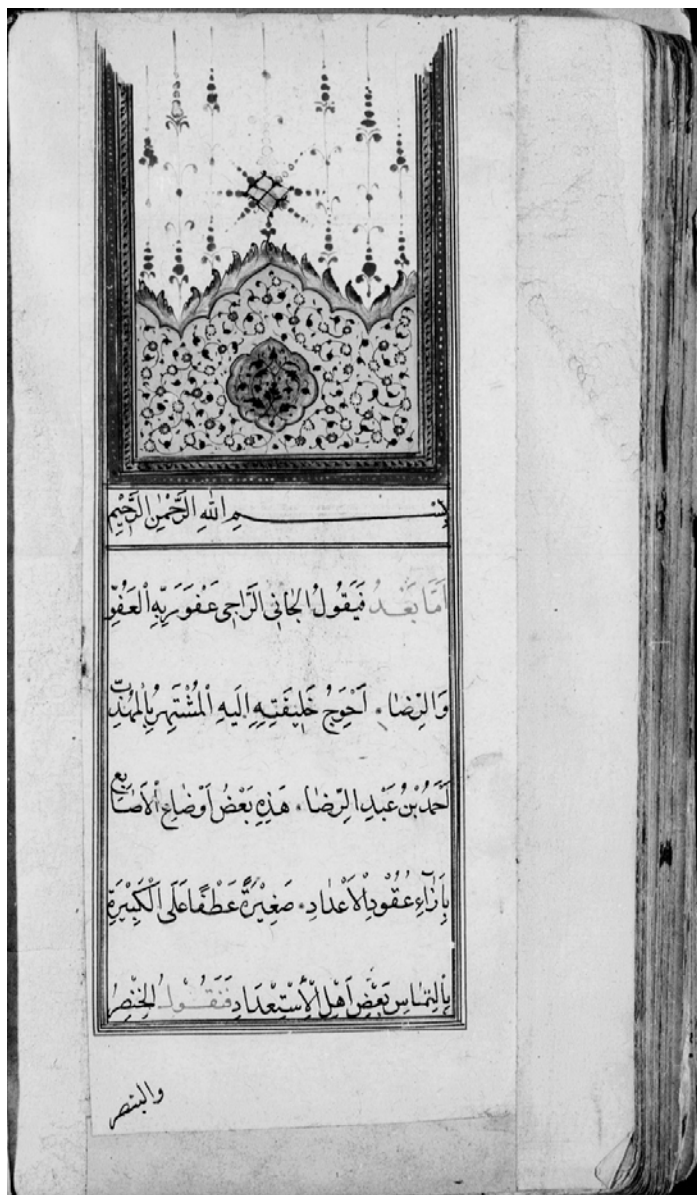 بِسْمِ اللهِ الرَّحْمٰنِ الرَّحِيْمِ
اَمَّا بَعْدُ فَيَقُولُ الجَانِى الرَّاجِى عَفْوَ رَبِّهِ الْعَفُوِّ
وَالرِّضَا ۰ اَحْوَجُ خَلِيقَتِهِ اِلَيهِ الْمُشْتَهِرُ بِالْمُهَذِّبِ
اَحْمَدُ بْنُ عَبْدِ الرِّضَا ۰ هَذِهِ بَعْضُ اَوْضَاعِ الْاَصَابِعِ
بِاِزَاءِ عُقُودِ الْاَعْدَادِ ۰ صَغِيْرَةً عَطْفًا عَلَى الْكَبِيْرَةِ
بِالْتِمَاسِ بَعْضِ اَهْلِ الْاِسْتِعْدَادِ فَنَقُولُ الخِنْصِرُ
والبنصر